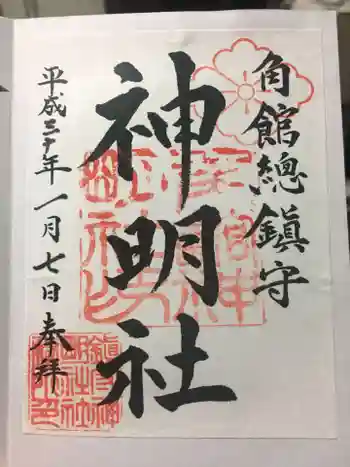 角館總鎮守
神明社
平成三十年一月七日奉拝